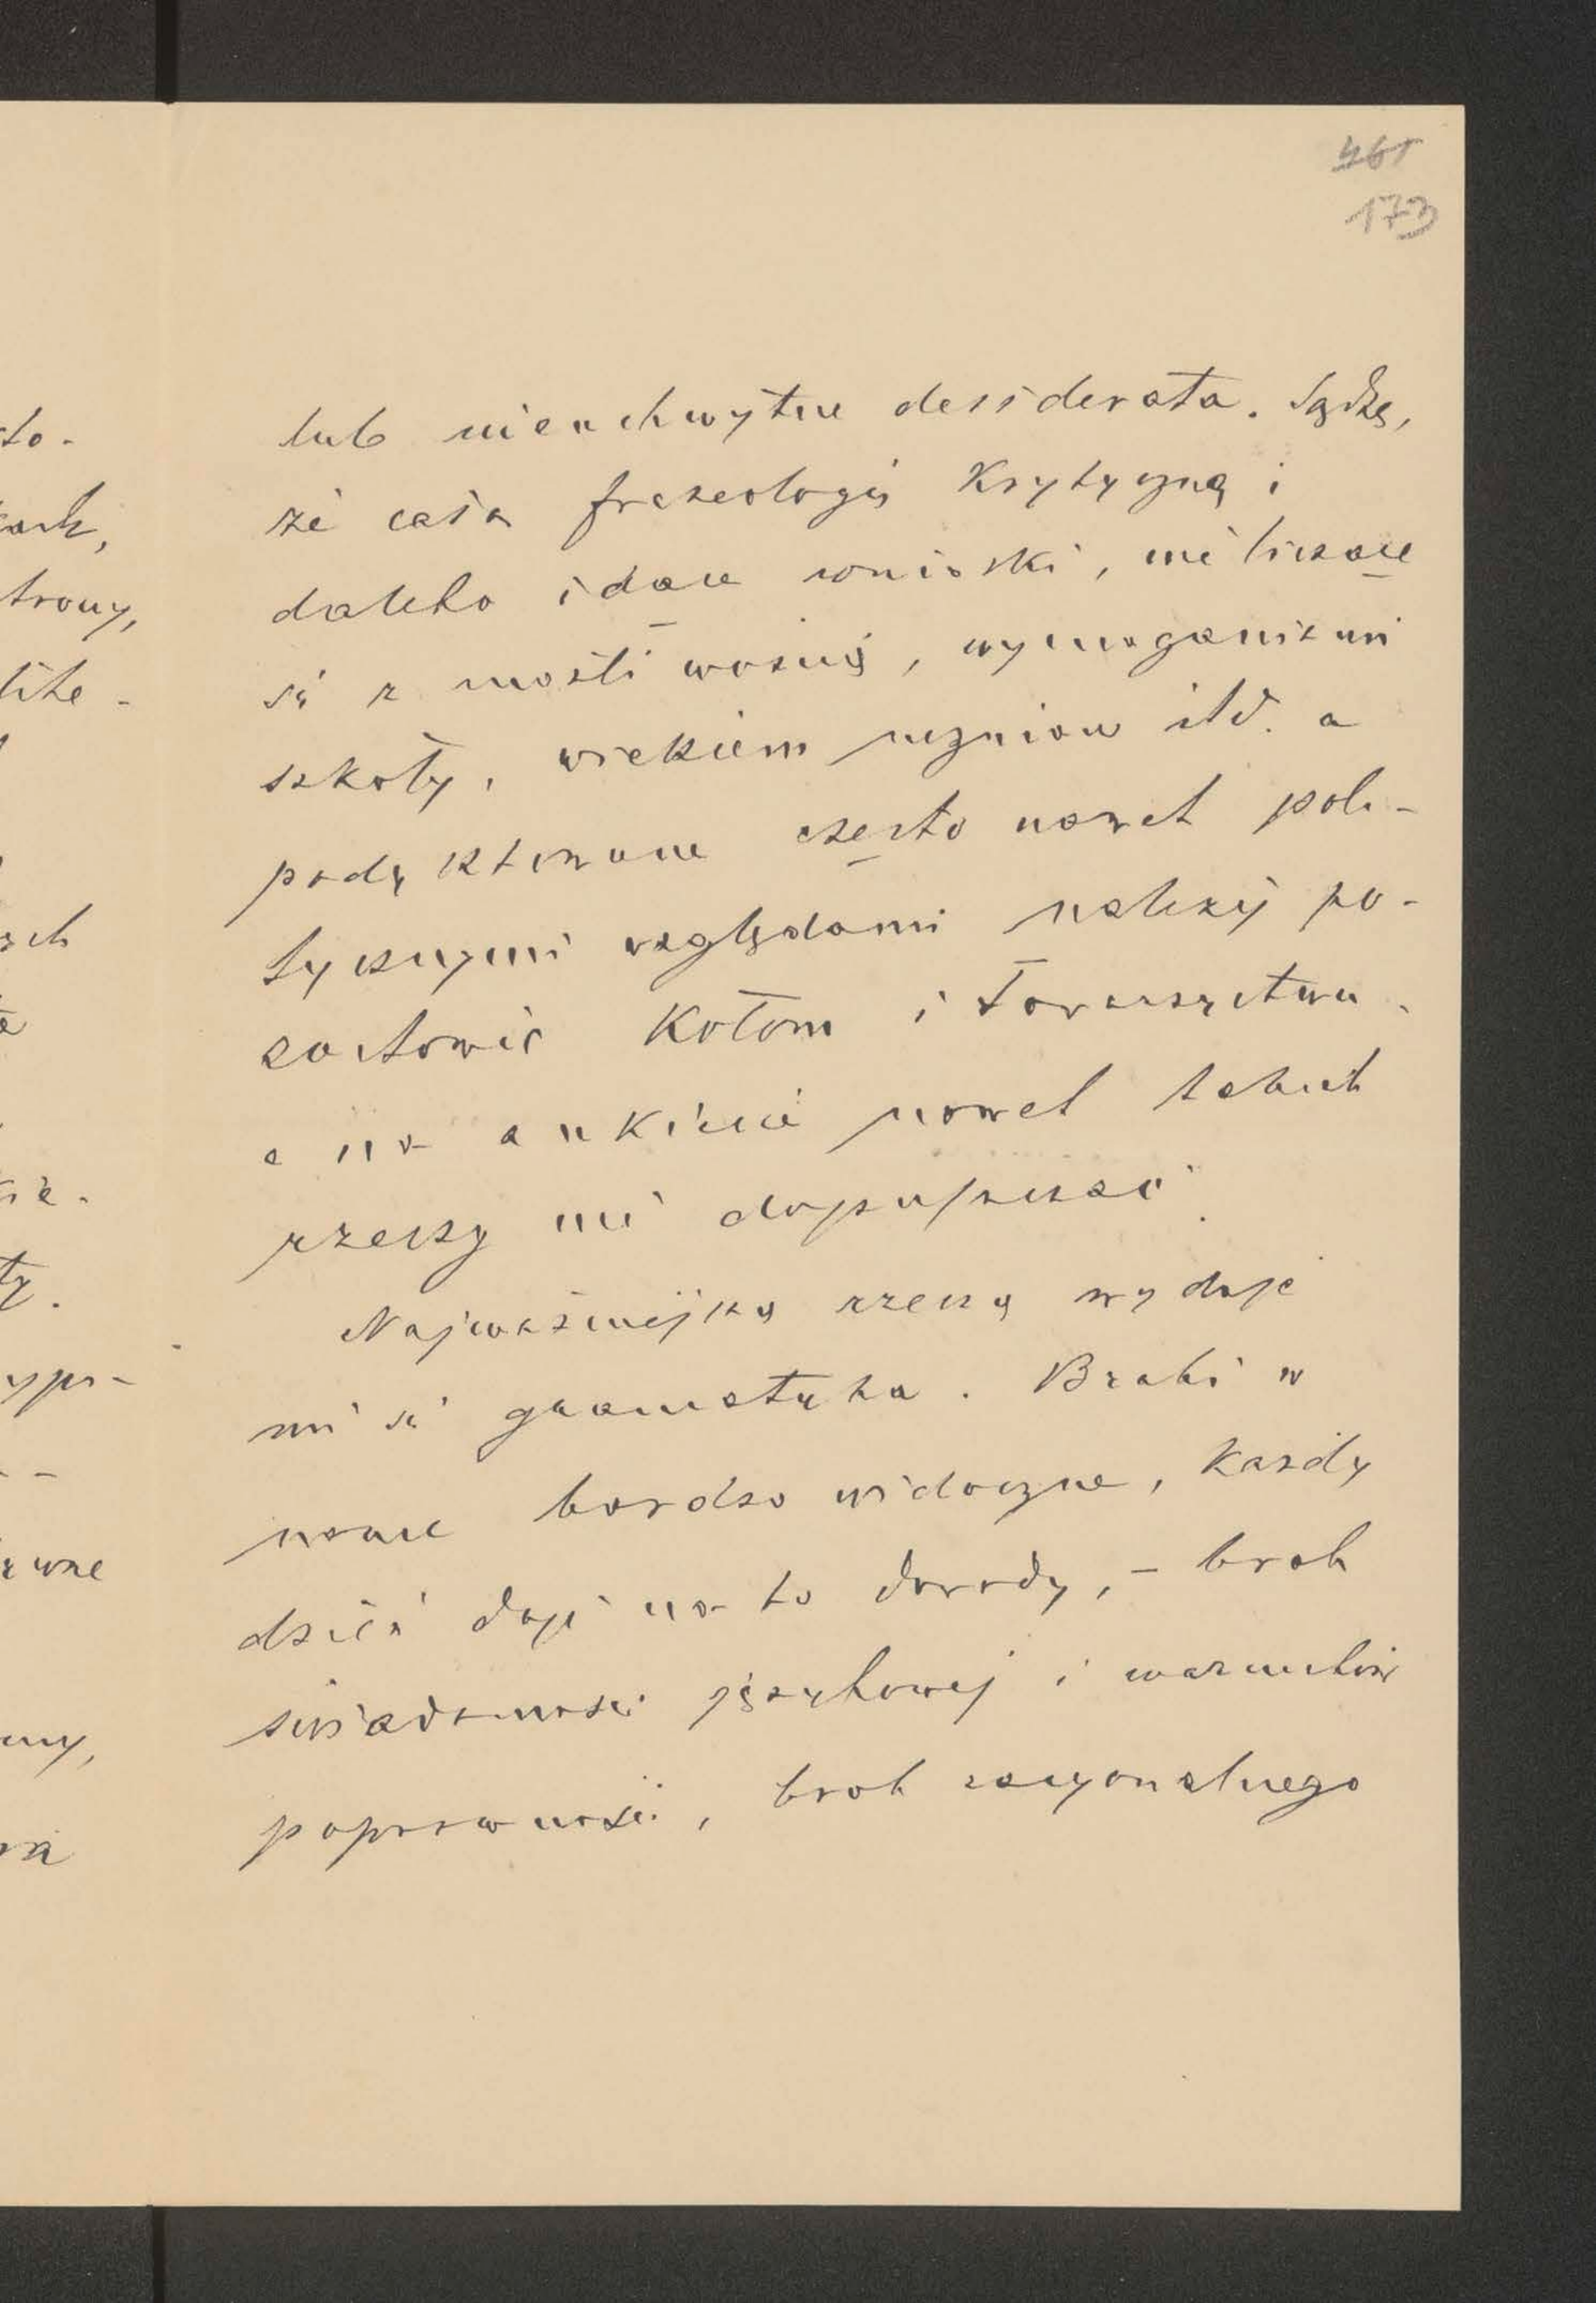 461
173
lub nieuchwytne desiderata. Sądzę,
że całą frazeologię krytyczną i
daleko idące wnioski, nie liczące
się z możliwością, wymaganiami
szkoły, wiekiem uczniów itd. a
podyktowane często nawet poli-
tycznymi względami należy po-
zostawić Kołom i Towarzystwu
a na ankiecie nawet takich
rzeczy nie dopuszczać.
Najważniejszą rzeczą wydaje
mi się gramatyka. Braki w
nauce bardzo widoczne, każdy
dzień daje na to dowody, – brak
świadomości językowej i warunków
poprawności, brak racyonalnego
to.
trony,
lite-
ty.